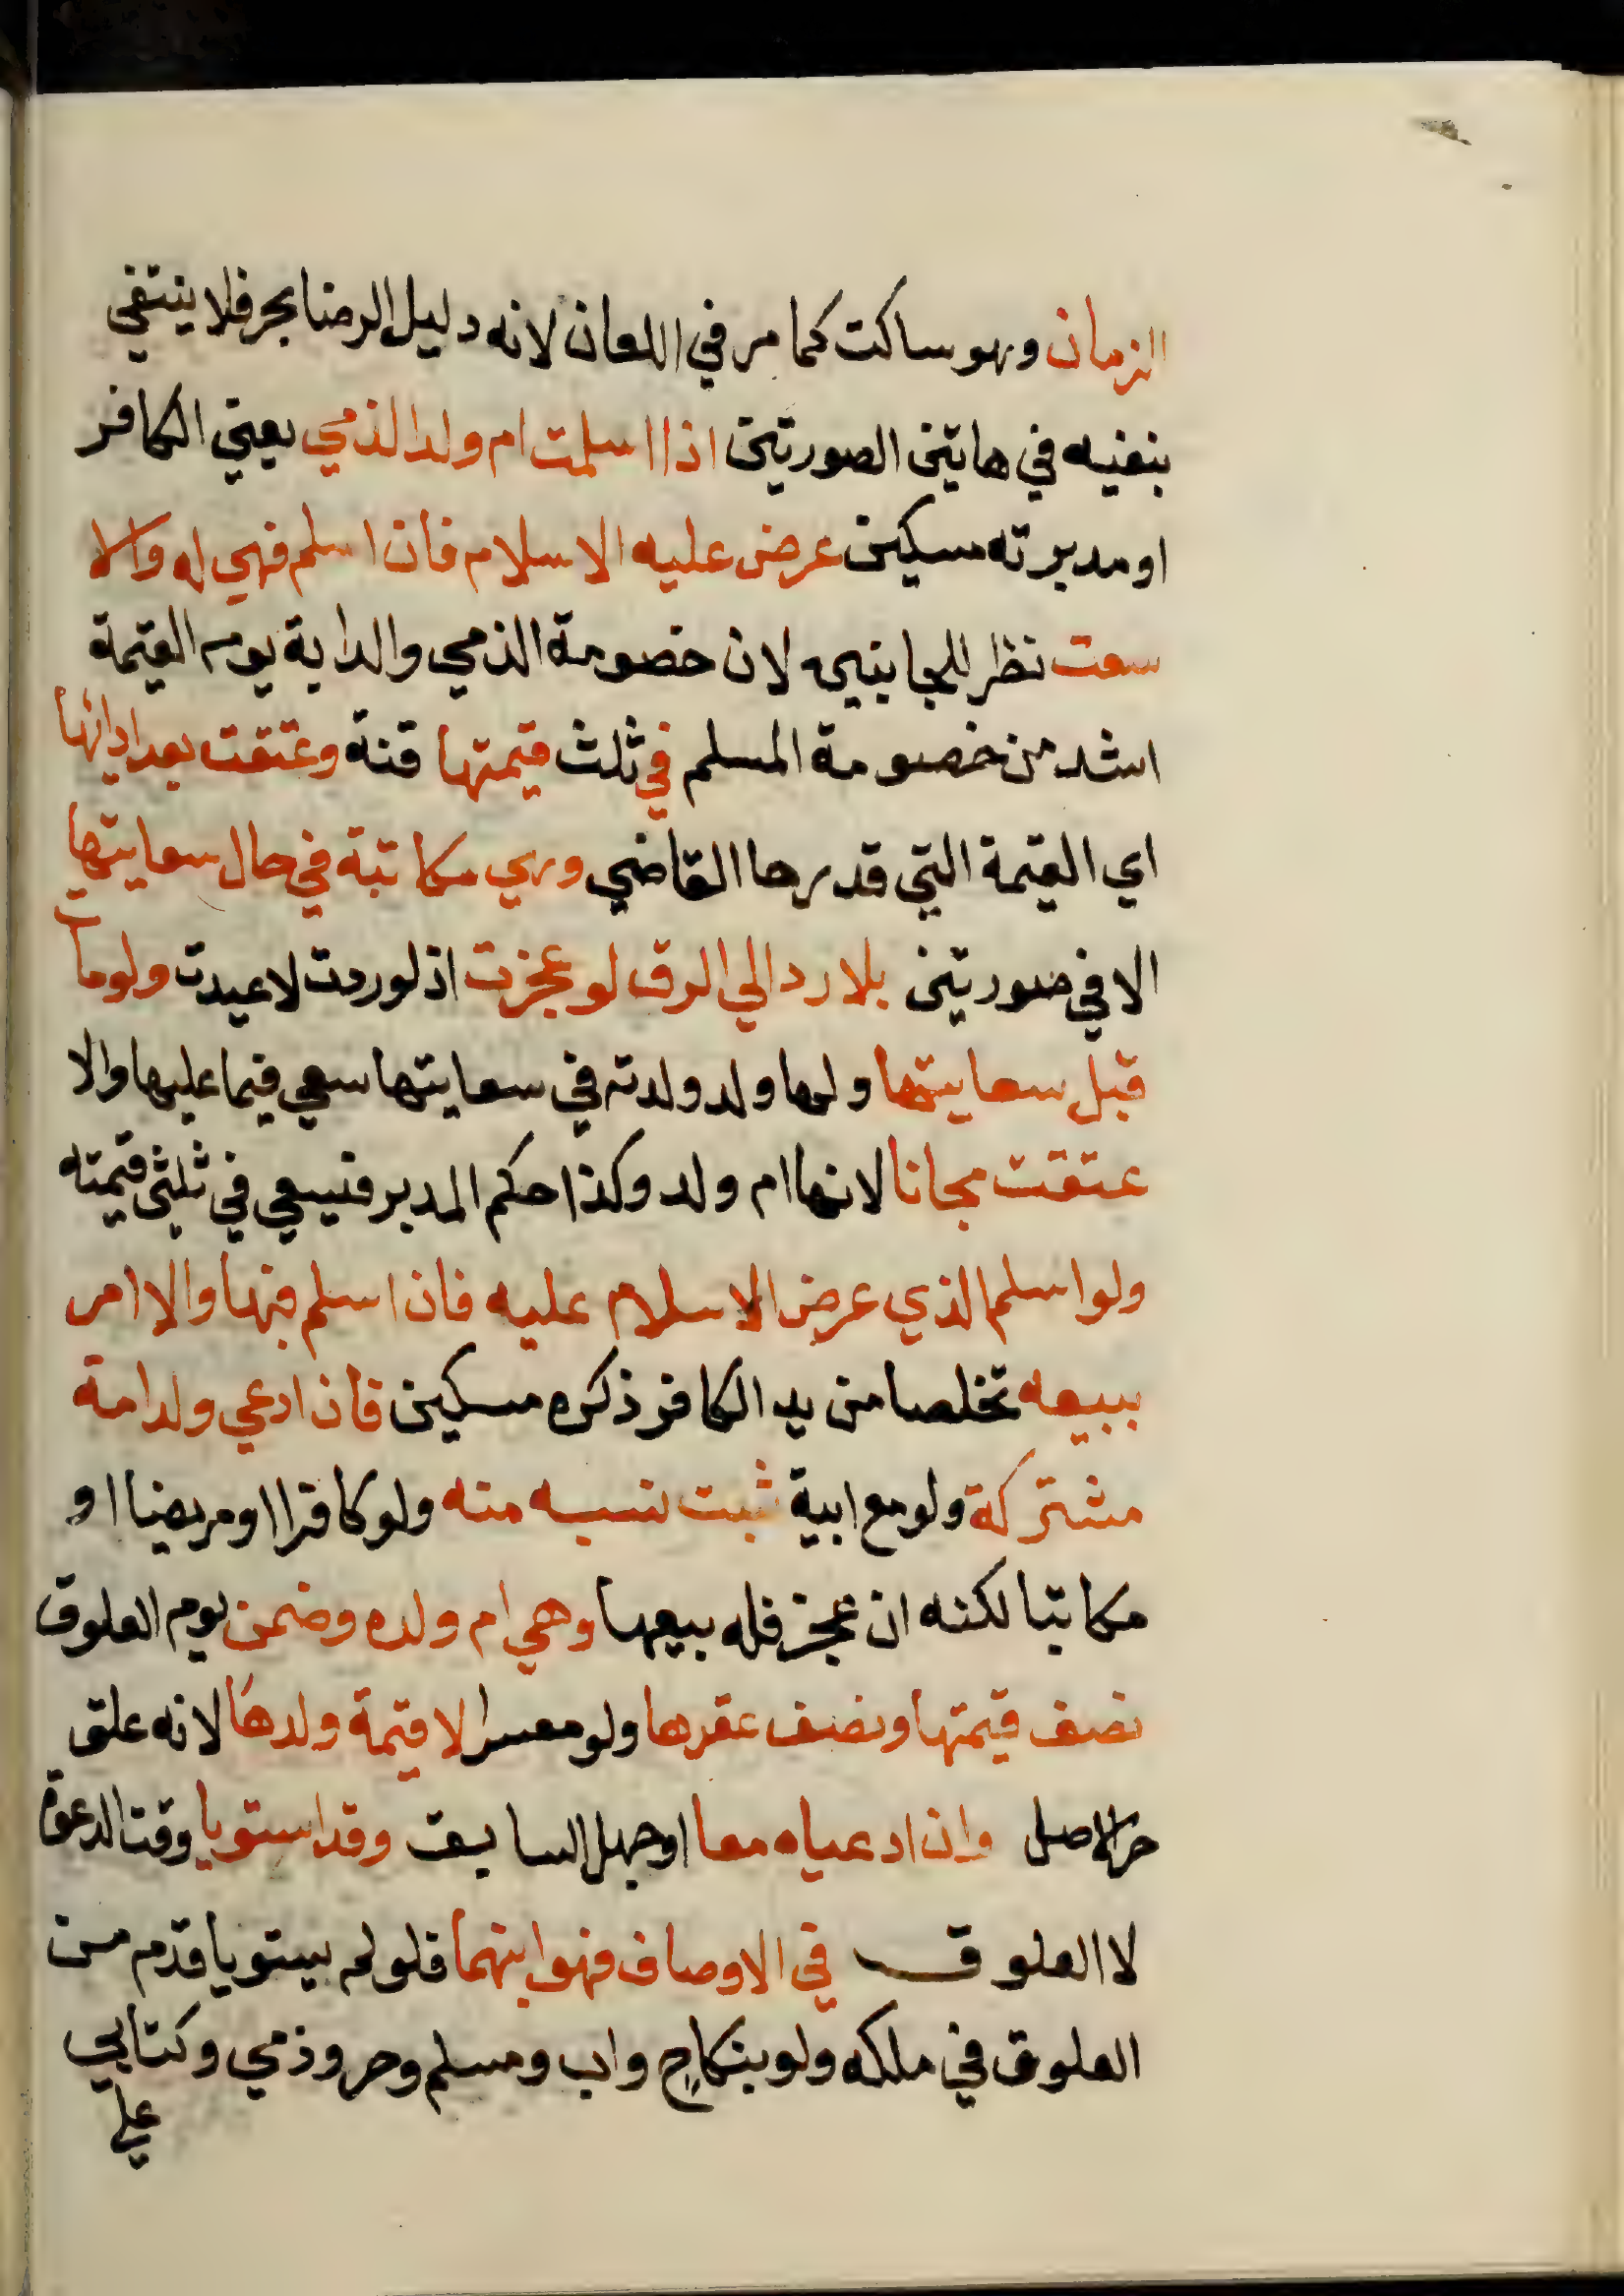 الزمان وهو ساكت كما مر في اللعان لانه دليل الرضا بحر فلا ينتفي
بنفيه في هاتين الصورتين اذا اسلمت ام ولد الذمي يعني الكافر
او مدبرته مسكين عرض عليه الاسلام فان اسلم فهي له والا
سعت نظر للجانبين لان خصومة الذمي والدابة يوم القيمة
اشد من خصومة المسلم في ثلث قيمتها قنة وعتقت بعد ادائها
اي القيمة التي قدرها القاضي وهي مكاتبة في حال سعايتها
الا في صورتين بلا رد الي الرق لو عجزت اذ لو ردت لاعيدت ولو مات
قبل سعايتها ولها ولد ولدته في سعايتها سعي فيما عليها والا
عتقت مجانا لانها ام ولد وكذا حكم المدبر فيسعي في ثلثي قيمته
ولو اسلم الذي عرض الاسلام عليه فان اسلم فبها والا امر
ببيعه تخلصا من يد الكافر ذكره مسكين فان ادعي ولد امة
مشتركة ولو مع ابية ثبت نسبه منه ولو كافرا او مريضا او
مكاتبا لكنه ان عجز فله بيعها وهي ام ولده وضمن يوم العلوق
نصف قيمتها ونصف عقرها ولو معسرا لا قيمة ولدها لانه علق
حر الاصل وان ادعياه معا او جهل السابق وقد استويا وقت الدعوة
لا العلوق في الاوصاف فهو ابنهما فلو لم يستويا قدم من
العلوق في ملكه ولو بنكاح واب ومسلم وحر وذمي وكتابي
علي